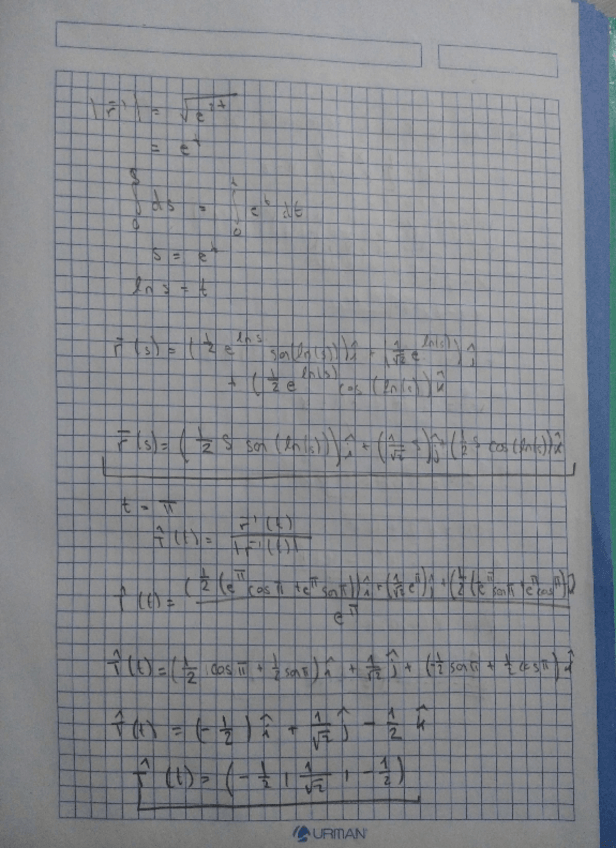 |r̄'| = √(e^{2t})
= e^t
∫_0^s ds = ∫_0^t e^t dt
s = e^t
ln s = t
r̄(s) = (1/2 e^{ln s} sen(ln(s))) î + (1/√2 e^{ln(s)}) ĵ
+ (1/2 e^{ln(s)} cos(ln(s))) k̂
r̄(s) = (1/2 s sen(ln(s))) î + (1/√2 s) ĵ + (1/2 s cos(ln(s))) k̂
t = π
T̂(t) = r̄'(t) / |r̄'(t)|
T̂(t) = (1/2 (e^π cos π + e^π sen π)) î + (1/√2 e^π) ĵ + (1/2 (e^π sen π + e^π cos π)) k̂ / e^π
T̂(t) = (1/2 cos π + 1/2 sen π) î + 1/√2 ĵ + (-1/2 sen π + 1/2 cos π) k̂
T̂(t) = (-1/2) î + 1/√2 ĵ - 1/2 k̂
T̂(t) = (-1/2, 1/√2, -1/2)
URMAN